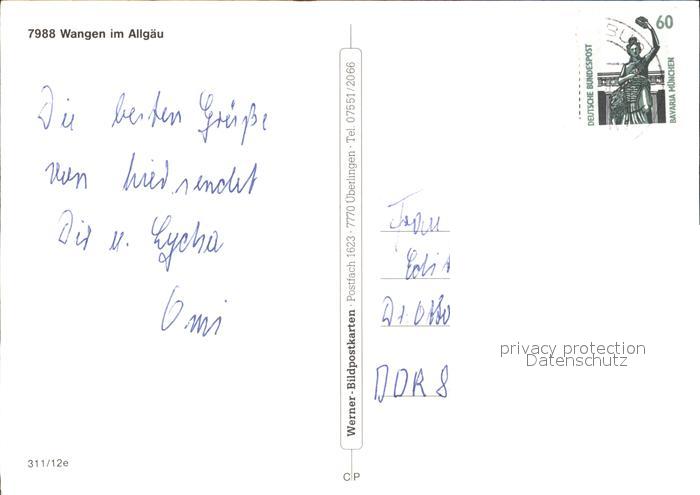 7988 Wangen im Allgäu
Die besten Grüße
von hier sendet
Dir u. Lycha
Omi
311/12e
Werner-Bildpostkarten · Postfach 1623 · 7770 Überlingen · Tel. 07551/2066
C P
60
DEUTSCHE BUNDESPOST
BAVARIA MÜNCHEN
Frau
Edit
Dr. Otto
DDR 8
privacy protection
Datenschutz